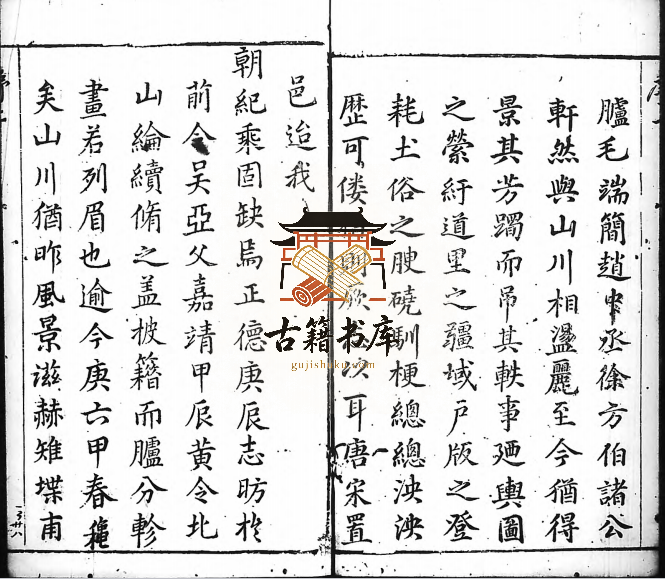 臚毛端簡趙中丞徐方伯諸公
軒然與山川相盪麗至今猶得
景其芳躅而吊其軼事廼輿圖
之縈紆道里之疆域戶版之登
耗土俗之腴磽馴梗總總泱泱
歴可僂
耳唐宋置
邑迨我
朝紀乘固缺焉正德庚辰志昉於
前令吴亞父嘉靖甲辰黄令北
山綸續脩之盖披籍而臚分軫
畫若列眉也逾今庚六甲春穐
矣山川猶昨風景滋赫雉堞甫
古籍书库
gujishuku.com